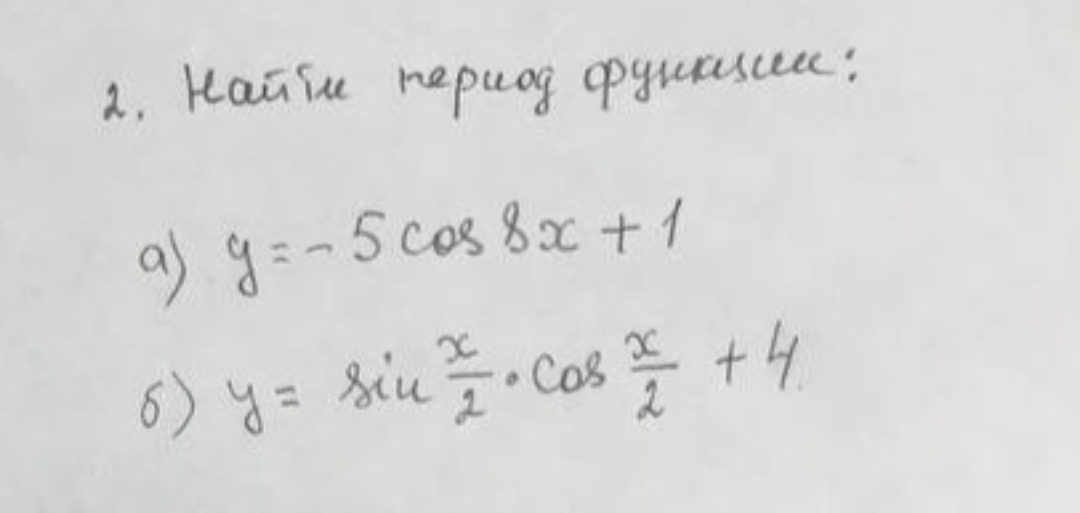 2. Найти период функции:
а) y = - 5 cos 8x + 1
б) y = sin x/2 · cos x/2 + 4